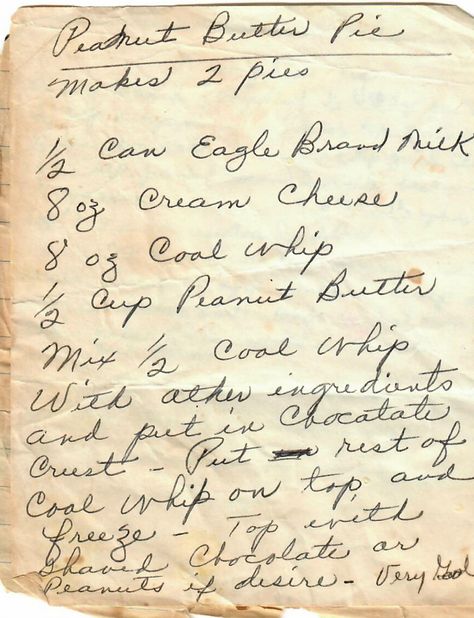 Peanut Butter Pie
Makes 2 pies
1/2 Can Eagle Brand Milk
8 oz Cream Cheese
8 oz Cool Whip
1/2 Cup Peanut Butter
Mix 1/2 Cool Whip
With other ingredients
and put in Chocolate
Crust - Put rest of
Cool Whip on top and
freeze - Top with
Shaved Chocolate or
Peanuts if desire - Very Good